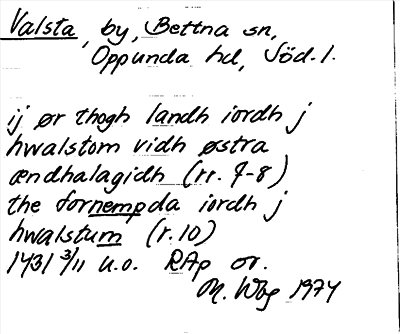 Valsta, by, Bettna sn,
Oppunda hd, Söd.l.
ij ør thogh landh iordh j
hwalstom vidh østra
ændhalagidh (rr. 7-8)
the fornempda iordh j
hwalstum (r. 10)
1431 3/11 u.o. RAp or.
M. Wbg 1974